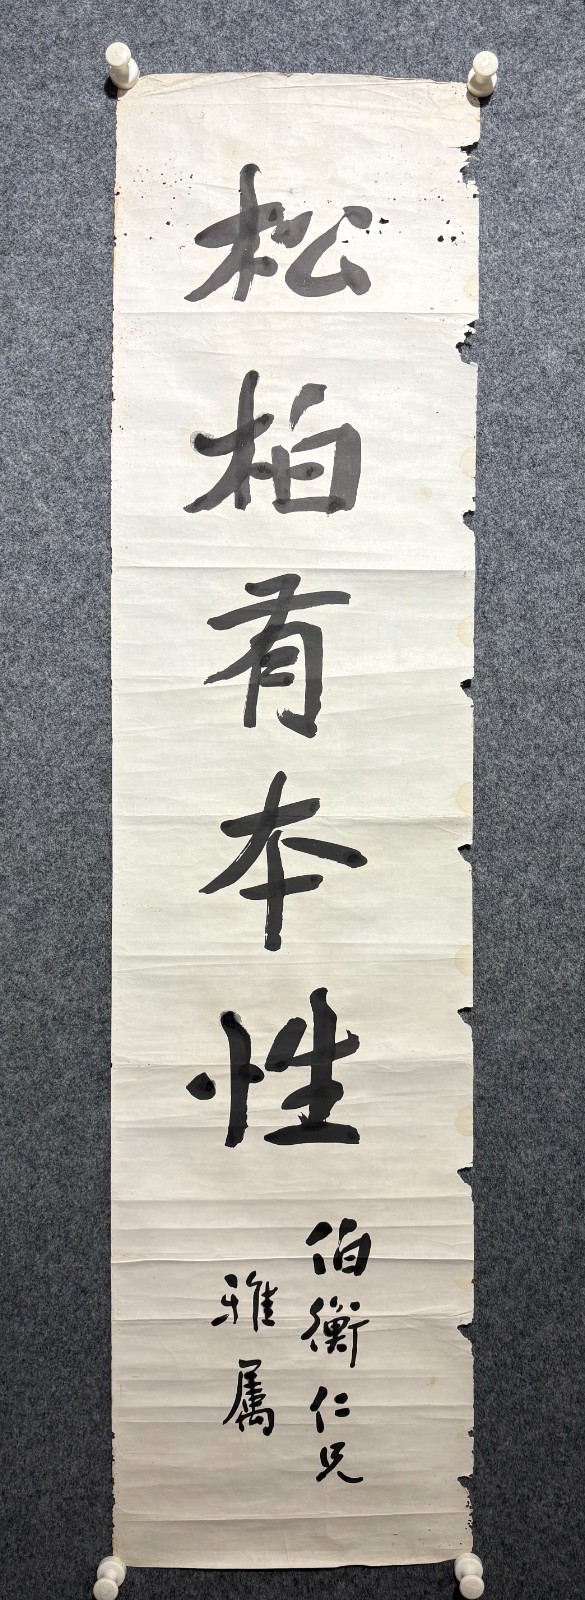 松柏有本性
伯衡仁兄
雅属